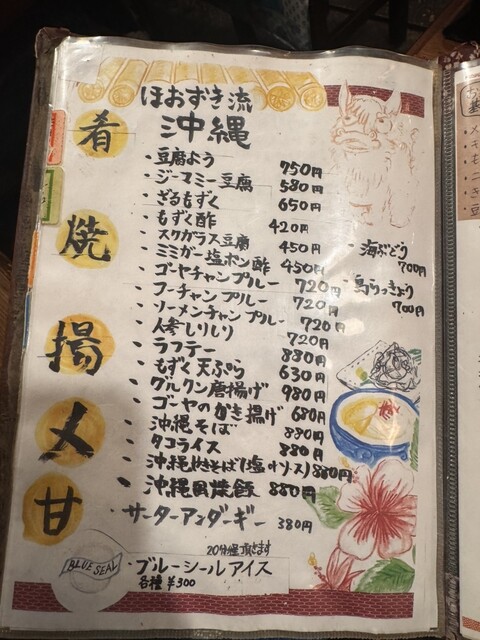 ほおずき流
沖縄
肴
・豆腐よう 750円
・ジーマミー豆腐 580円
・ざるもずく 650円
・もずく酢 420円
・スクガラス豆腐 450円
・ミミガー塩ポン酢 450円
・海ぶどう 700円
・島らっきょう 700円
焼
・ゴーヤチャンプルー 720円
・フーチャンプルー 720円
・ソーメンチャンプルー 720円
・人参しりしり 720円
・ラフテー 880円
揚
・もずく天ぷら 630円
・グルクン唐揚げ 980円
・ゴーヤのかき揚げ 680円
〆
・沖縄そば 880円
・タコライス 880円
・沖縄やきそば(塩orソース) 880円
・沖縄風焼飯 880円
甘
・サーターアンダーギー 380円
20分程頂きます
BLUE SEAL
・ブルーシールアイス
各種 ¥300